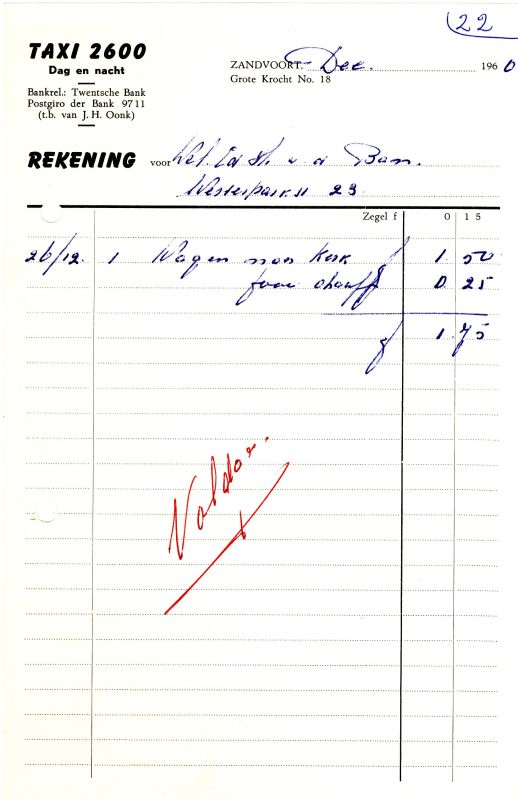 22
TAXI 2600
Dag en nacht
Bankrel.: Twentsche Bank
Postgiro der Bank 9711
(t.b. van J. H. Oonk)
ZANDVOORT, Dec. 1960
Grote Krocht No. 18
REKENING voor v d Ban.
23
Zegel f 0 15
26/12. 1 Wagen naar Kerk f 1 50
fooi chauff 0 25
f 1 75
Voldaan